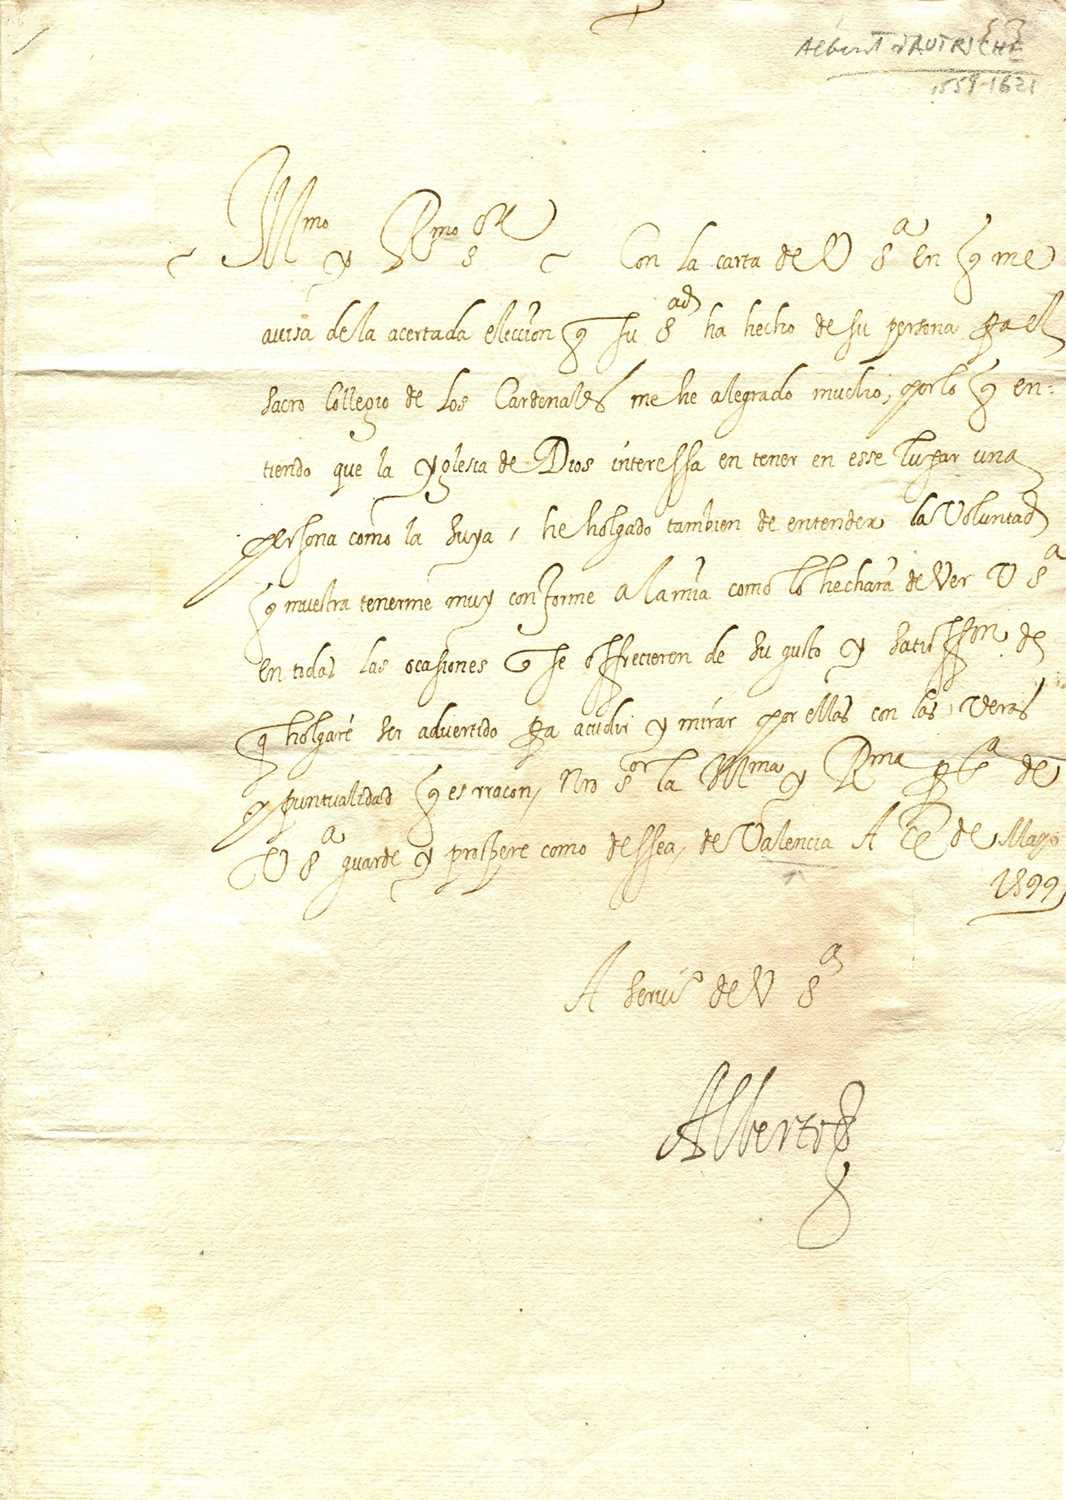 Albert d'AUTRICHE
1559-1621
Illmo y Rmo Sor Con la carta de V Sa en q me
avisa de la acertada eleccion q su Sad ha hecho de su persona pa el
sacro Collegio de los Cardenales me he alegrado mucho, por lo q en=
tiendo que la yglesia de Dios interessa en tener en esse lugar una
persona como la suya, he holgado tambien de entender la Voluntad
q muestra tenerme muy conforme a la mia como lo hechara de ver V Sa
en todas las ocasiones q se offrecieren de su gusto y satisffon de
q holgaré ser advertido pa acudir y mirar por ellas con las veras
y puntualidad q es rraçon, Nro Sor la Illma y Rma pa de
V Sa guarde y prospere como dessea, de Valencia A de Mayo
1599
A servio de V Sa
Alberto